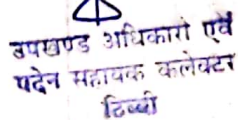 उपखण्ड अधिकारी एवं
पदेन सहायक कलेक्टर
टिब्बी